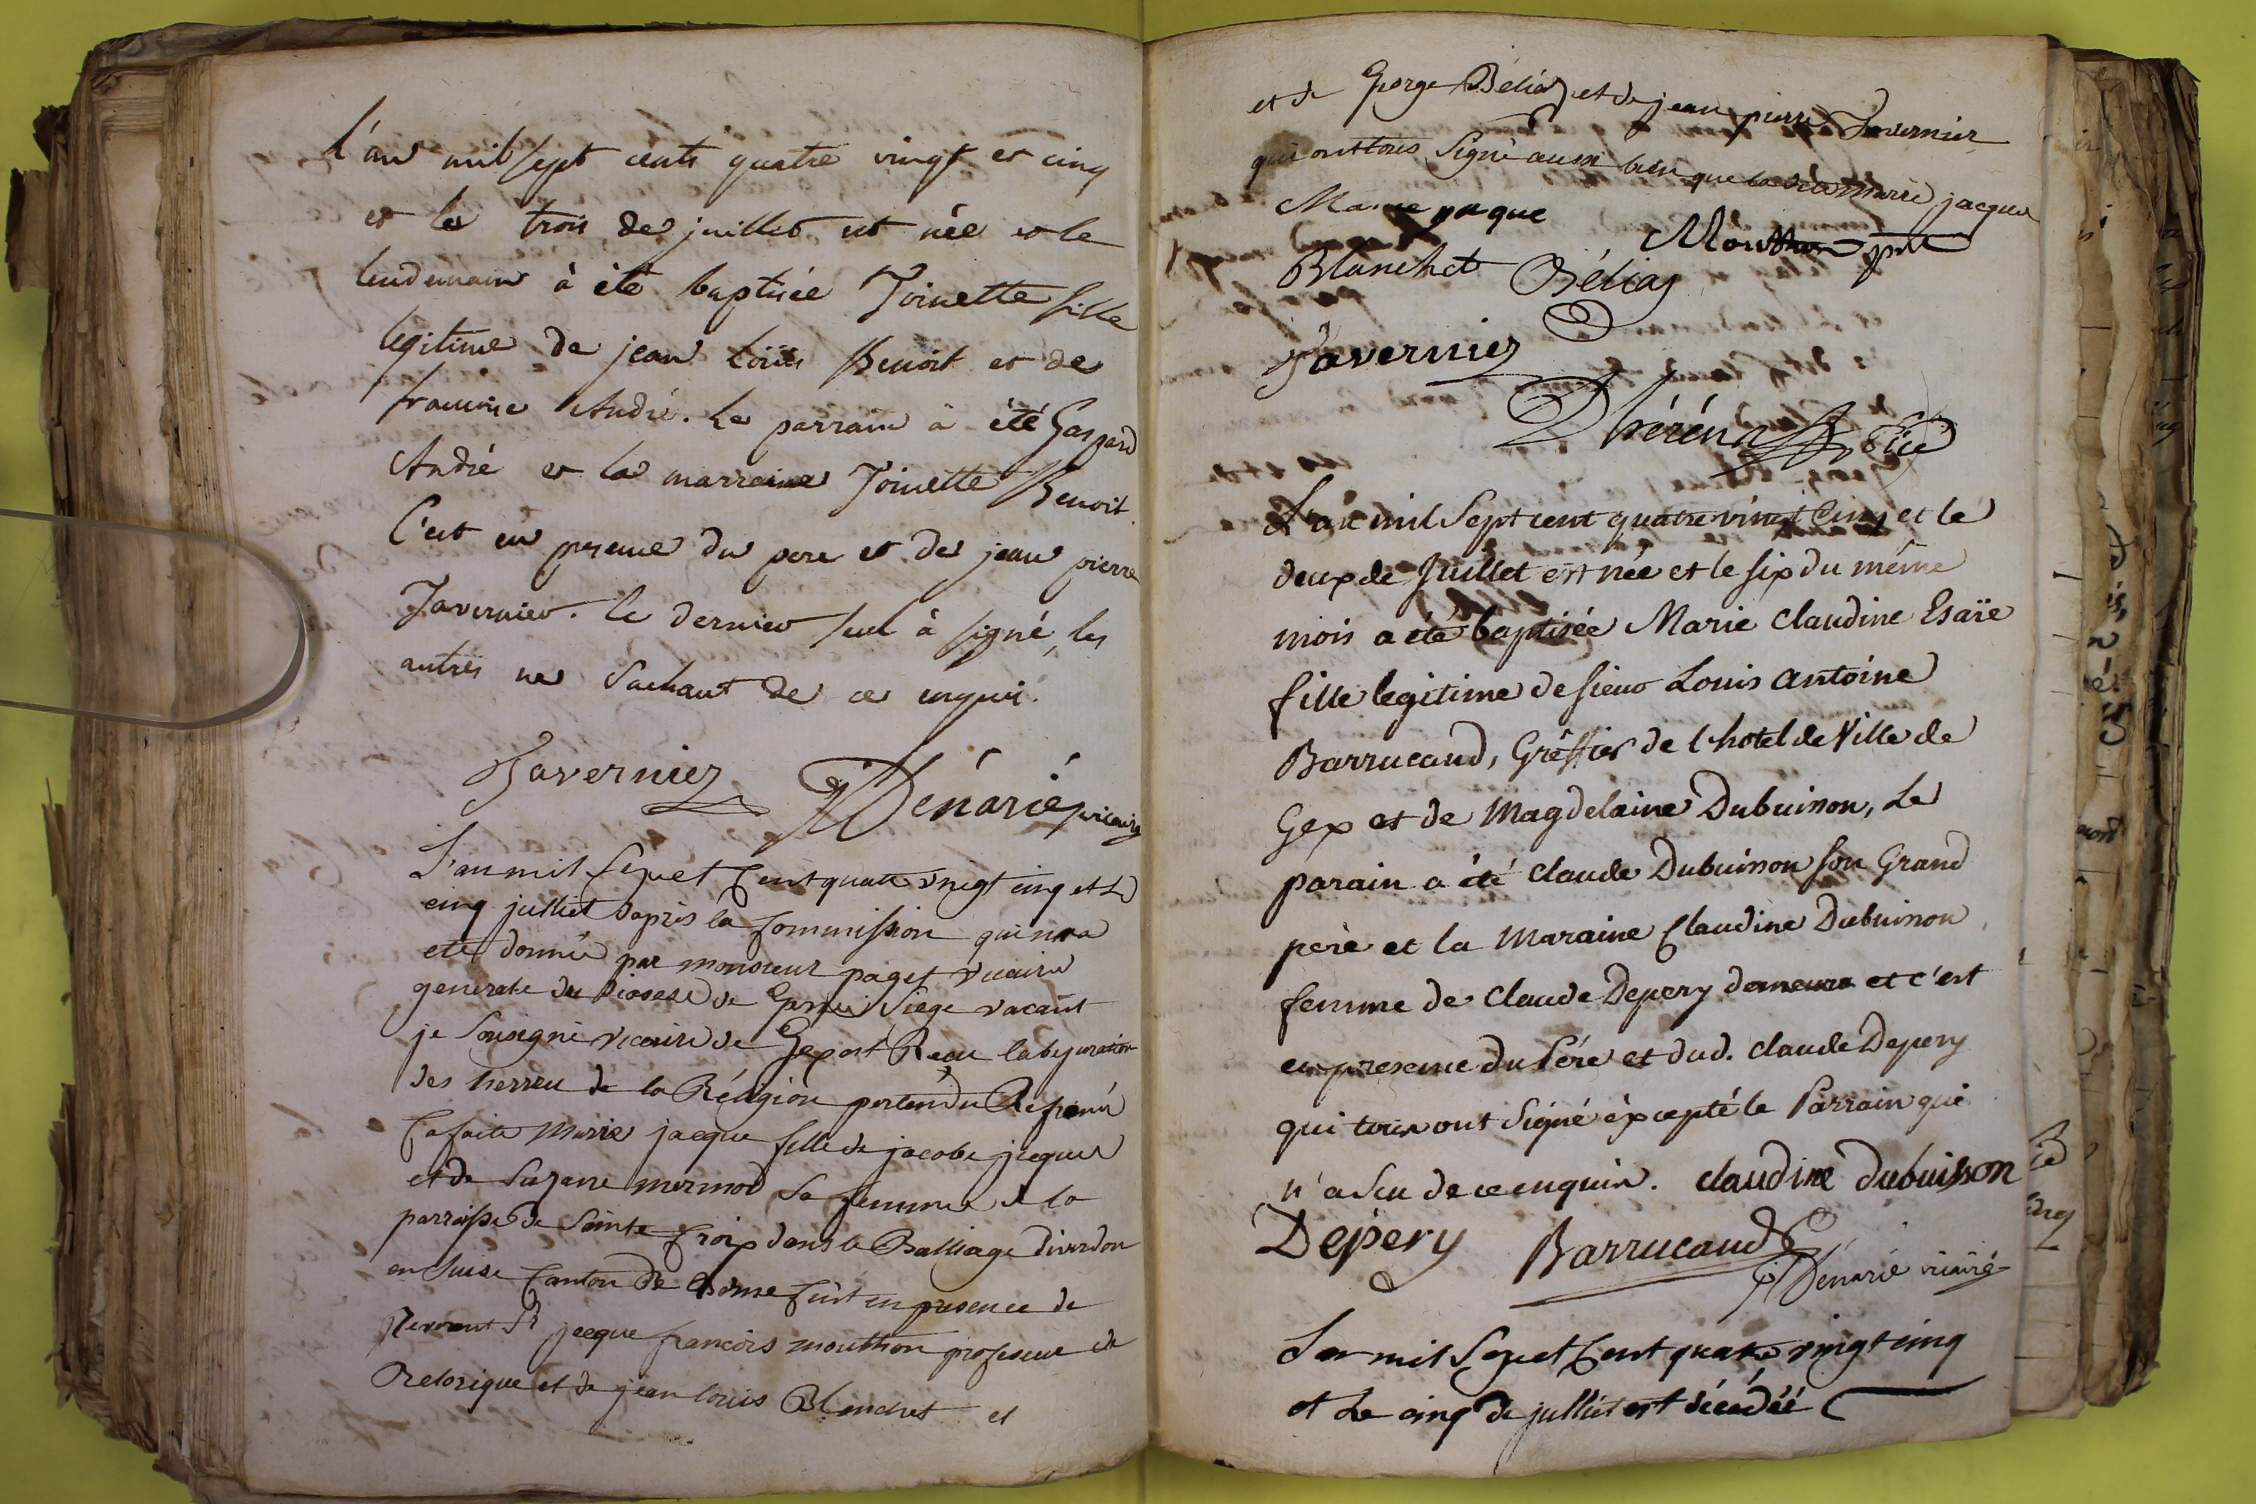 L'an mil sept cents quatre vingt et cinq
et le trois de juillet est née et le
lendemain à été baptisée Joinette fille
legitime de jean Loüis Benoit et de
francoise André. Le parrain à été Gaspard
André et la marraine Joinette Benoit.
C'est en presence du pere et de jean pierre
Tavernier. le dernier seul à signé, les
autres ne sachant de ce enquis.
Tavernier Dénarié vicaire
L'an mil sepuet Cent quatre vingt cinq et le
cinq julliet dapris la Commission qui m'a
ete donnée par monsieur paget vicaire
generale du diosese de Siege vacant
je Sousigné vicaire de Gex ont Reçu labjuration
des herreu de la Réligion pertendu Reformé
Ca faite Marie jacque fille de jacobe jacques
et de Suzane mermod Sa femme de la
parroisse de Sainte Croix dans le Balliage diverdon
en Suise Canton de Berne Cest en presence de
Reverent Sr jacque francois mouthon profeseur de
Retorique et de jean louis Blanchet et
et de George Béliaz et de jean pierre Tavernier
qui ont tous Signé aussi bien que la dite Marie jacque
Marie jaque Mouthon
Blanchet Béliaz
Tavernier
L'an mil Sept cent quatre vingt Cinq et le
deux de Juillet est née et le six du même
mois a été baptisée Marie Claudine Esaïe
fille legitime de sieur Louis Antoine
Barrucand, Gréffier de l'hotel de Ville de
Gex et de Magdelaine Dubuisson, Le
parain a été Claude Dubuisson son Grand
père et la Maraine Claudine Dubuisson
femme de Claude Depery demeure et c'est
en presence du Père et dud. Claude Depery
qui tous ont Signé èxcepté le Parrain qui
n'a Scu de ce enquis. Claudine dubuisson
Depery Barrucand Dénarié vicaire
Lan mil Sepuet Cent quatre vingt cinq
et Le cinq de julliet est décedéé